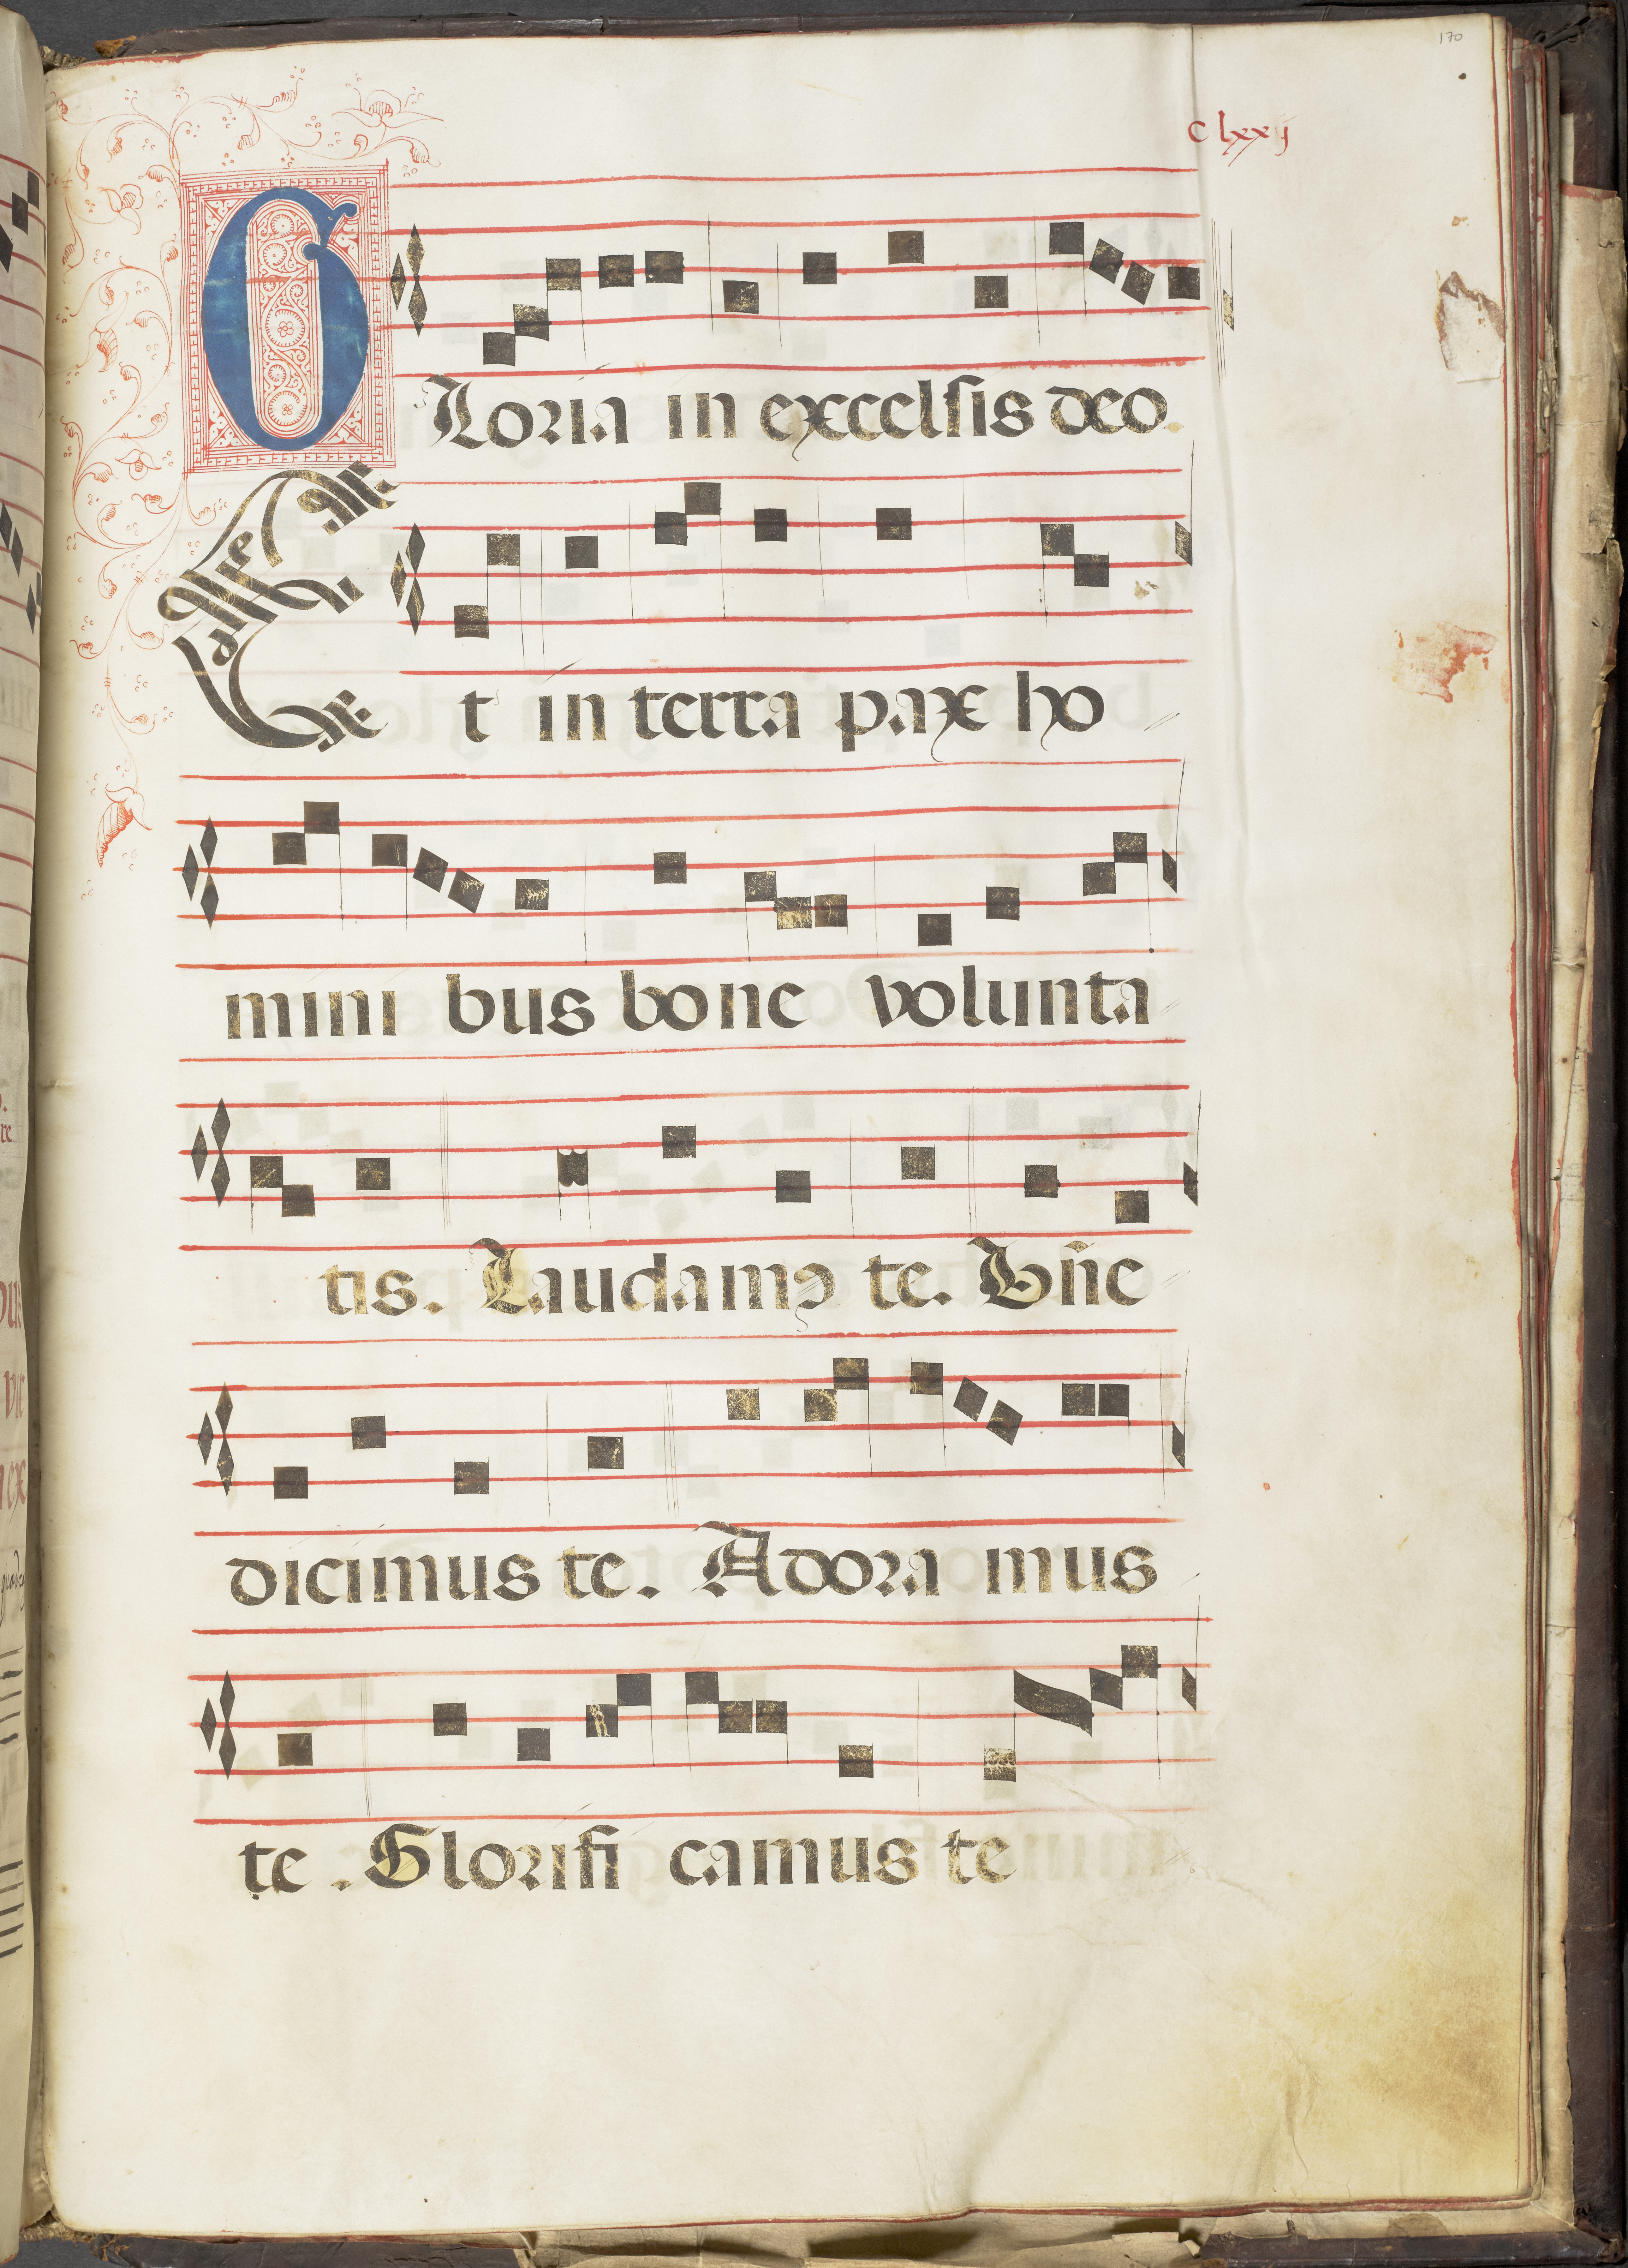 170
Clxxij
GLoria in excelsis deo.
Et in terra pax ho
mini bus bone volunta
tis. Laudamꝯ te. Bn̄e
dicimus te. Adora mus
te. Glorifi camus te